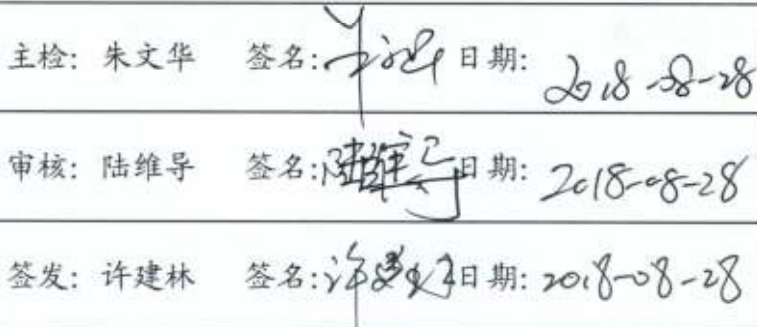 主检: 朱文华 签名: 朱文华 日期: 2018-08-28
审核: 陆维导 签名: 陆维导 日期: 2018-08-28
签发: 许建林 签名: 许建林 日期: 2018-08-28